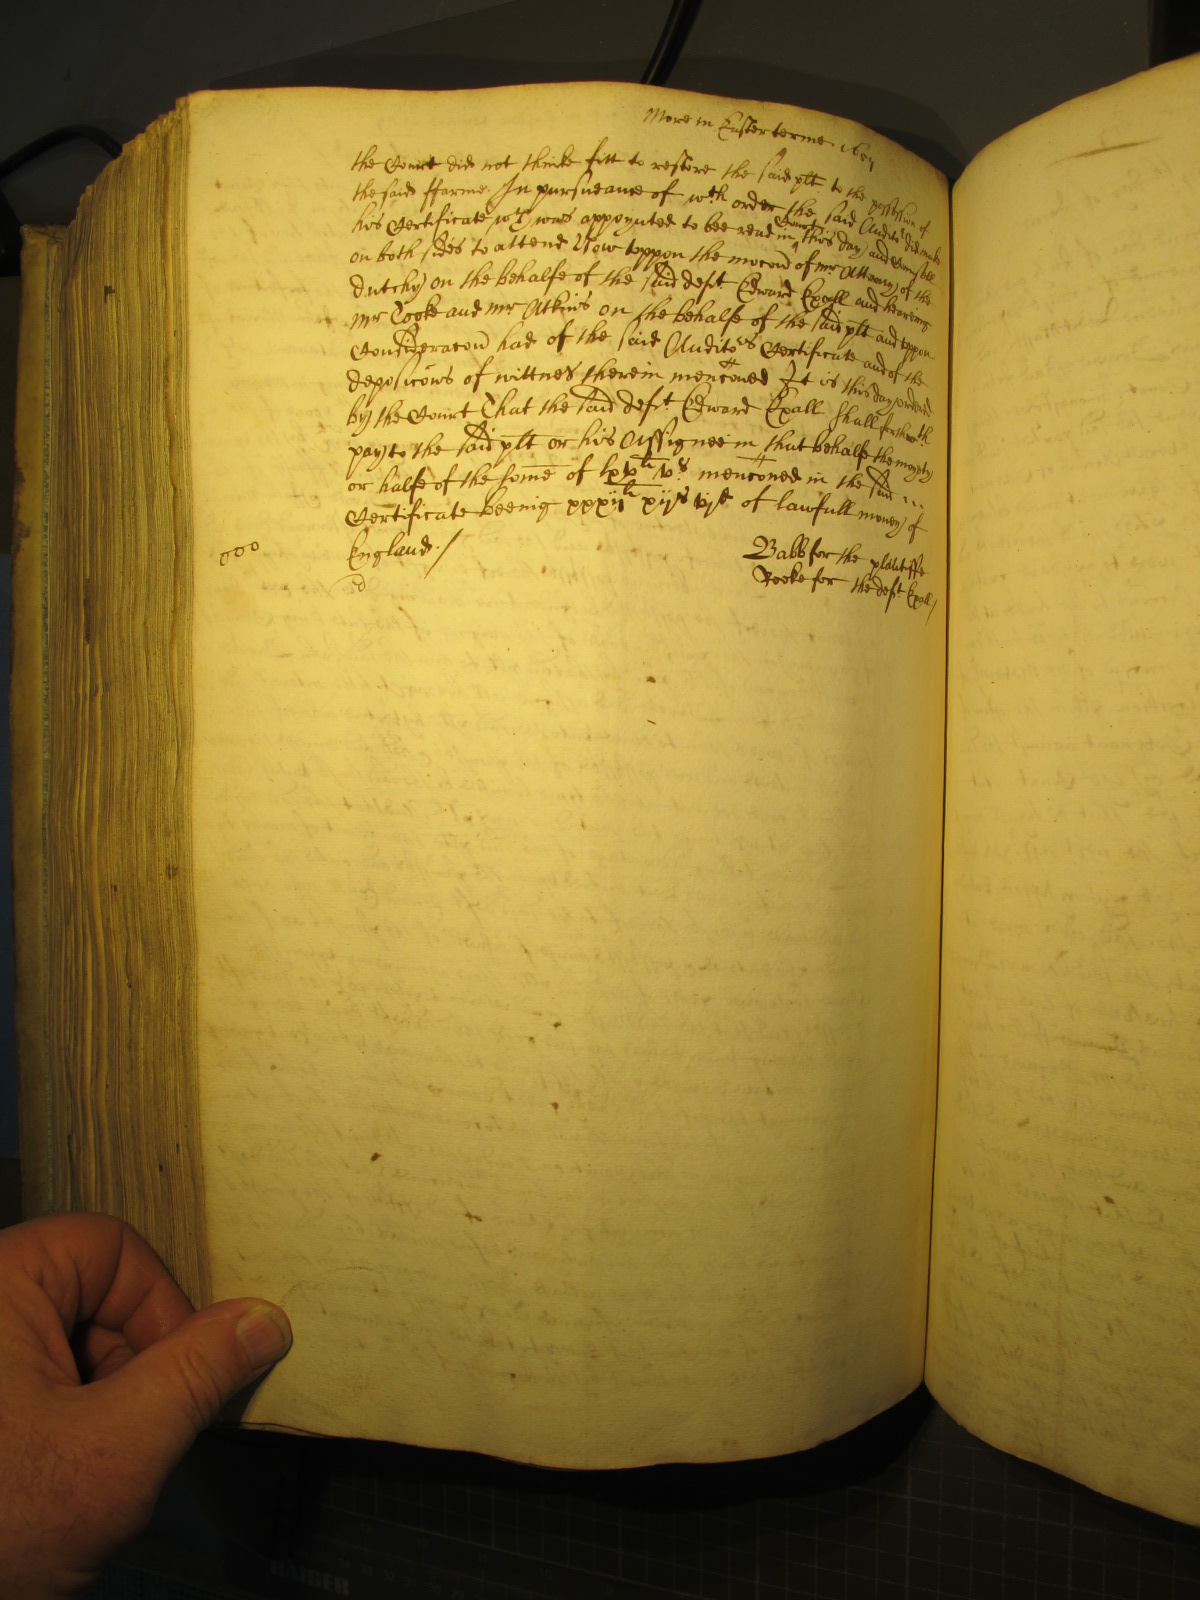 More in Easter terme 165
the Court did not thinke fitt to restore the said plt to the possession of
the said ffarme. In pursueance of wch order the said Auditor did make
his Certificate wch was appoynted to bee read in Court this day and Councell
on both sides to attend Now uppon the mocon of mr Attorney of the
dutchy on the behalfe of the said deft Edward Exall and heareing
mr Cooke and mr Atkins on the behalfe of the said plt and uppon
Consideracon had of the said Auditors Certificate and of the
deposicons of wittness therein menconed It is this day ordered
by the Court That the said deft Edward Exall shall forthwth
pay to the said plt or his Assignee in that behalfe the moyety
or halfe of the some of lxvli vs menconed in the said ...
Certificate beeing xxxijli xijs vjd of lawfull money of
England ./
ooo
Babb for the plaintiffe
Rooke for the deft Exall/